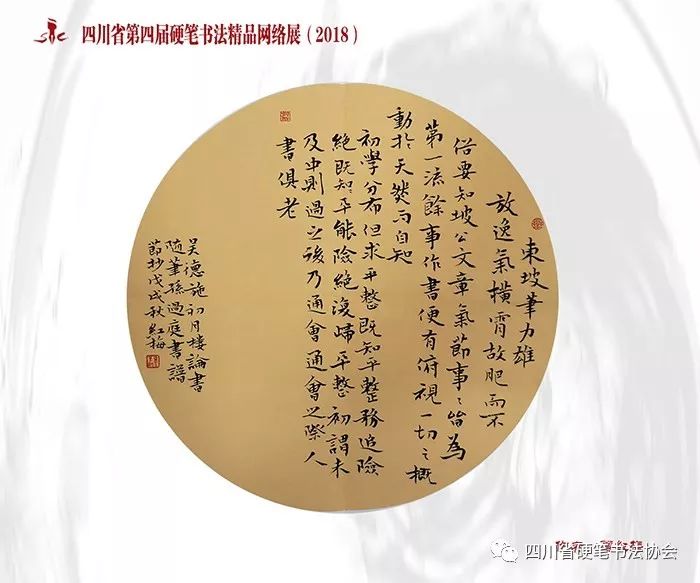 四川省第四届硬笔书法精品网络展（2018）
东坡筆力雄
放逸氣横霄故肥而不
俗要知坡公文章氣節事〻皆為
第一流餘事作書便有俯視一切之概
動於天然而自知
初學分布但求平整既知平整務追險
絶既知平能險絶復歸平整初謂未
及中則過之後乃通會通會之際人
書俱老
吴德旋初月樓論書
随筆孫過庭書譜
節抄戊戌秋紅梅
四川省硬笔书法协会